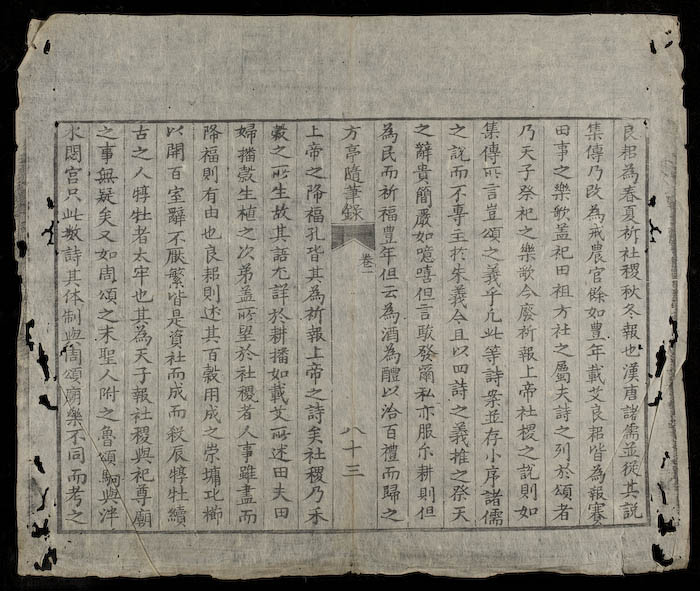 良耜為春夏祈社稷秋冬報也漢唐諸儒並從其説
集傳乃改為戒農官餘如豊年載芟良耜皆為報賽
田事之樂歌盖祀田祖方社之屬夫詩之列於頌者
乃天子祭祀之樂歌今廢祈報上帝社稷之説則如
集傳所言豈頌之義乎凡此等詩案並存小序諸儒
之説而不專主於朱義今且以四詩之義推之祭天
之辭貴簡嚴如噫嘻但言駿發爾私亦服爾耕則但
為民而祈福豊年但云為酒為醴以洽百禮而歸之
方亭隨筆錄
卷二
八十三
上帝之降福孔皆其為祈報上帝之詩矣社稷乃禾
穀之所生故其語尤詳於耕播如載芟所述田夫田
婦播穀生植之次弟盖所望於社稷者人事雖盡而
降福則有由也良耜則述其百穀用成之崇墉比櫛
以開百室辭不厭繁皆是資社而成而殺辰犉牡續
古之人犉牡者太牢也其為天子報社稷與祀尊廟
之事無疑矣又如周頌之末聖人附之魯頌駉與泮
水閟宫只此数詩其体制與周頌廟樂不同而考之